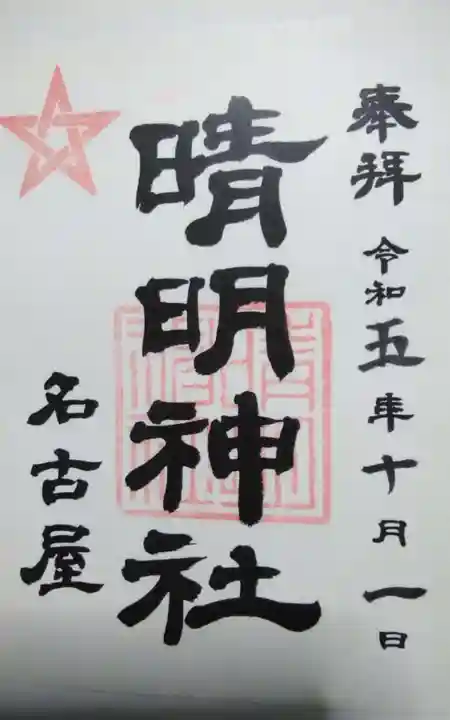 奉拝 令和五年十月一日
晴明神社
名古屋